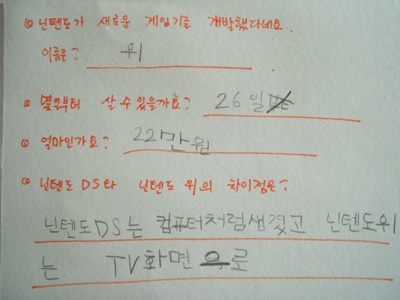 닌텐도가 새로운 게임기를 개발했다네요.
이름은? 위
몇일부터 살 수 있을까요? 26일
얼마인가요? 22만원
닌텐도DS와 닌텐도 위의 차이점은?
닌텐도DS는 컴퓨터처럼생겼고 닌텐도위
는 TV화면으로